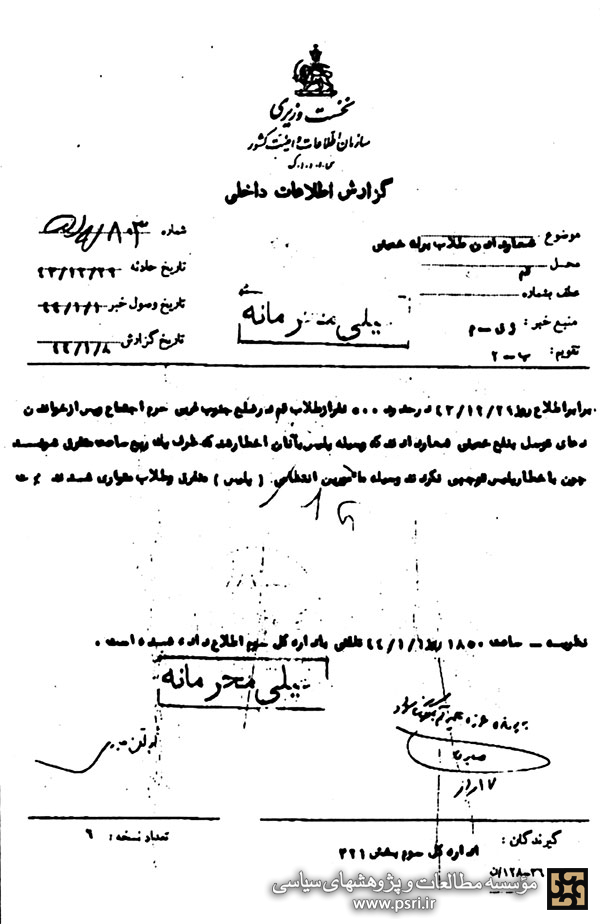 نخست وزیری
سازمان اطلاعات و امنیت کشور
س.ا.و.ا.ک
گزارش اطلاعات داخلی
موضوع شعار دادن طلاب برله خمینی
محل قم
عطف بشماره
منبع خبر:
تقویم: ب-۲
شماره
تاریخ حادثه ۴۳/۱۲/۲۹
تاریخ وصول خبر ۴۴/۱/۱
تاریخ گزارش ۴۴/۱/۸
خیلی محرمانه
برابر اطلاع روز ۴۳/۱۲/۲۹ در حدود ۵۰۰ نفر از طلاب قم در ضلع جنوب غربی حرم اجتماع و پس از خواندن
دعای توسل بنفع خمینی شعار دادند که وسیله پلیس بآنان اخطار شد که ظرف یک ربع ساعت متفرق شوند
چون باخطار پلیس توجهی نکردند وسیله مامورین انتظامی (پلیس) متفرق و طلاب متواری شدند
نظریه - ساعت ۱۸۵۰ روز ۴۴/۱/۱ تلفنی باداره کل سوم اطلاع داده شده است.
خیلی محرمانه
گیرندگان: اداره کل سوم بخش ۳۲۱
تعداد نسخه: ۶
۳۶-۱۲۸/ن
مؤسسه مطالعات و پژوهشهای سیاسی
www.psri.ir